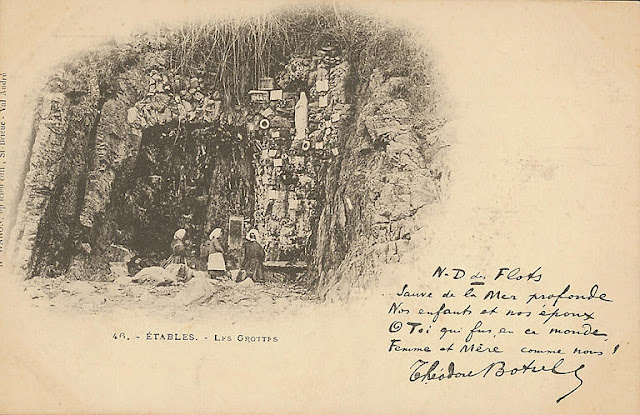 46. - ÉTABLES. - LES GROTTES
N-D des Flots
Sauve de la Mer profonde
Nos enfants et nos époux
O Toi qui fus, en ce monde,
Femme et Mère comme nous !
Théodore Botrel
St Brieuc - Val André